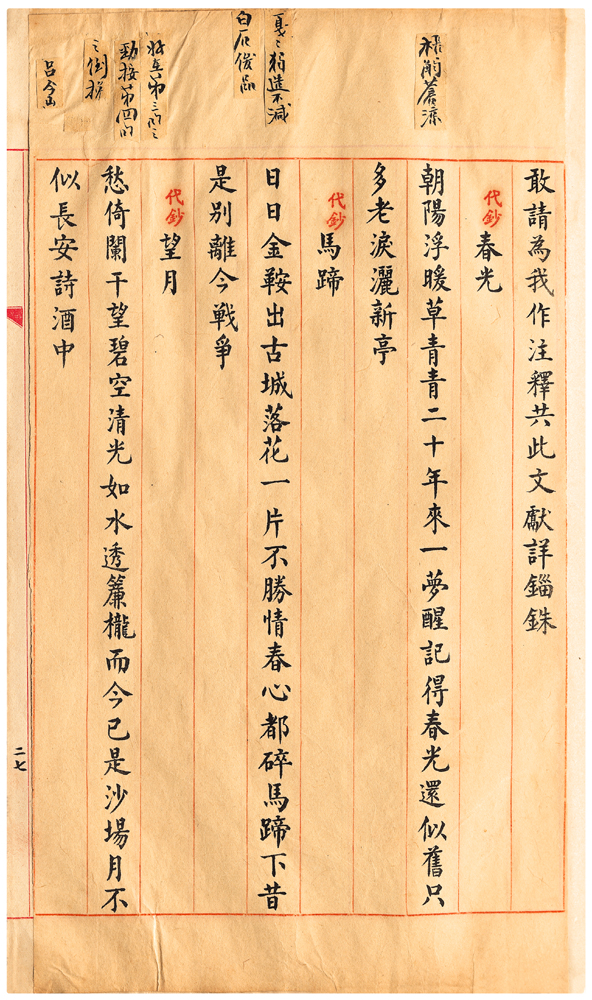 蒼涼
敢請為我作注釋共此文獻詳錙銖
代鈔 春光
朝陽浮暖草青青二十年來一夢醒記得春光還似舊只
多老淚灑新亭
代鈔 馬蹄
戛〻獨造不減
白石俊品
日日金鞍出古城落花一片不勝情春心都碎馬蹄下昔
是别離今戰爭
代鈔 望月
好在第三句之
勁接第四句
之倒接
呂今山
愁倚闌干望碧空清光如水透簾櫳而今已是沙場月不
似長安詩酒中
二七